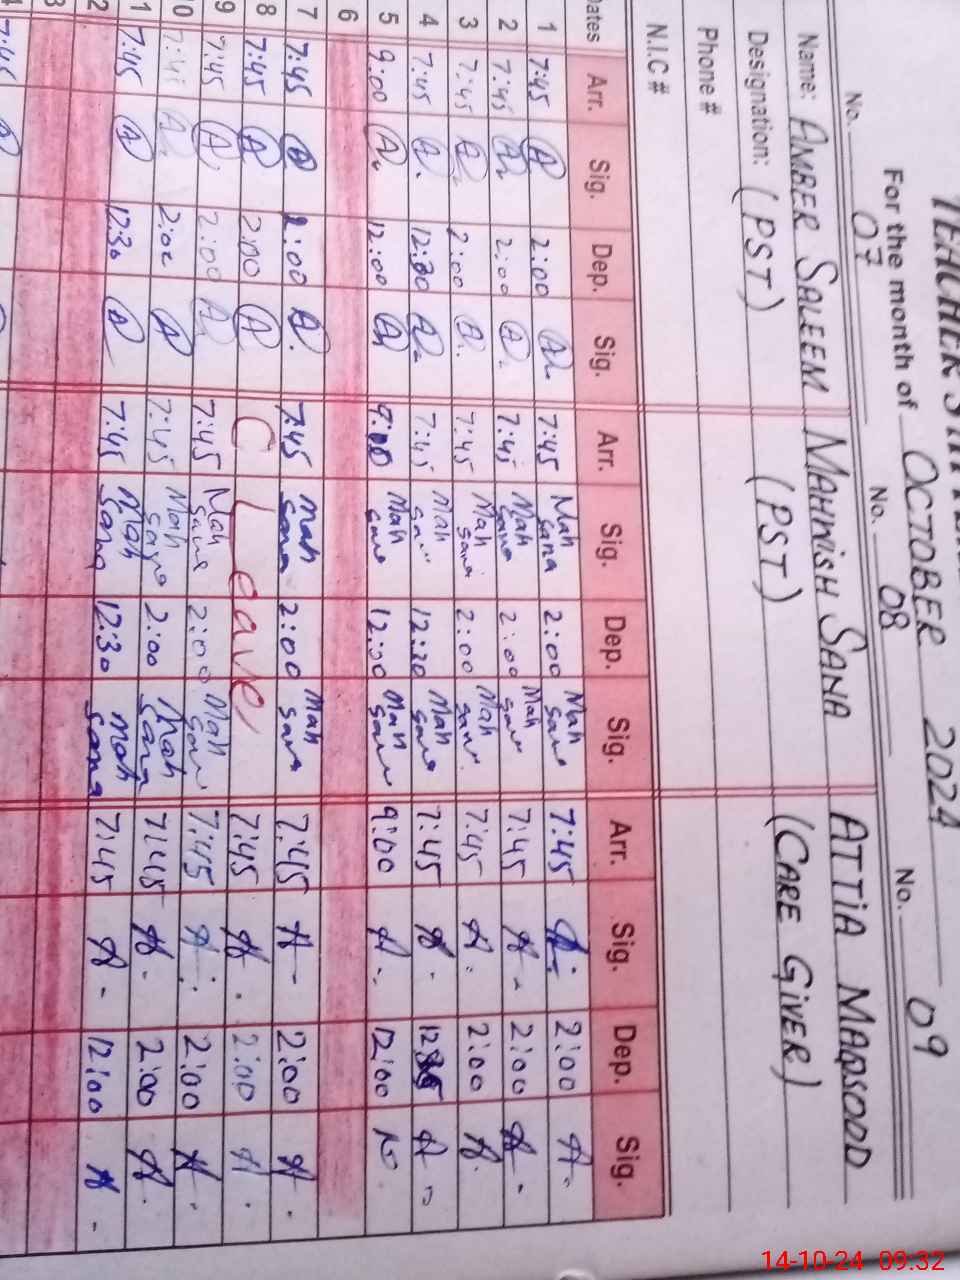 TEACHER'S
For the month of OCTOBER 2024
No. 07 No. 08 No. 09
Name: AMBER SALEEM MAHWISH SANA ATTIA MAQSOOD
Designation: (PST) (PST) (CARE GIVER)
Phone #
N.I.C #
Dates Arr. Sig. Dep. Sig. Arr. Sig. Dep. Sig. Arr. Sig. Dep. Sig.
1 7:45 A 2:00 A 7:45 Mah sana 2:00 Mah sana 7:45 A 2:00 A
2 7:45 A 2:00 A 7:45 Mah sana 2:00 Mah sana 7:45 A 2:00 A
3 7:45 A 2:00 A 7:45 Mah sana 2:00 Mah sana 7:45 A 2:00 A
4 7:45 A 12:30 A 7:45 Mah sana 12:30 Mah sana 7:45 A A
5 9:00 A 12:00 A 9:00 Mah sana 12:30 Mah sana 9:00 A 12:00
6
7 7:45 A 2:00 A 7:45 Mah sana 2:00 Mah sana 7:45 A 2:00 A
8 7:45 A 2:00 A C Leave 7:45 A 2:00 A
9 7:45 A 2:00 A 7:45 Mah sana 2:00 Mah sana 7:45 A 2:00 A
10 7:45 A 2:00 A 7:45 Mah sana 2:00 Mah sana 7:45 A 2:00 A
11 7:45 A 12:30 A 7:45 Mah sana 12:30 Mah sana 7:45 A 12:00 A
7:45
14-10-24 09:32